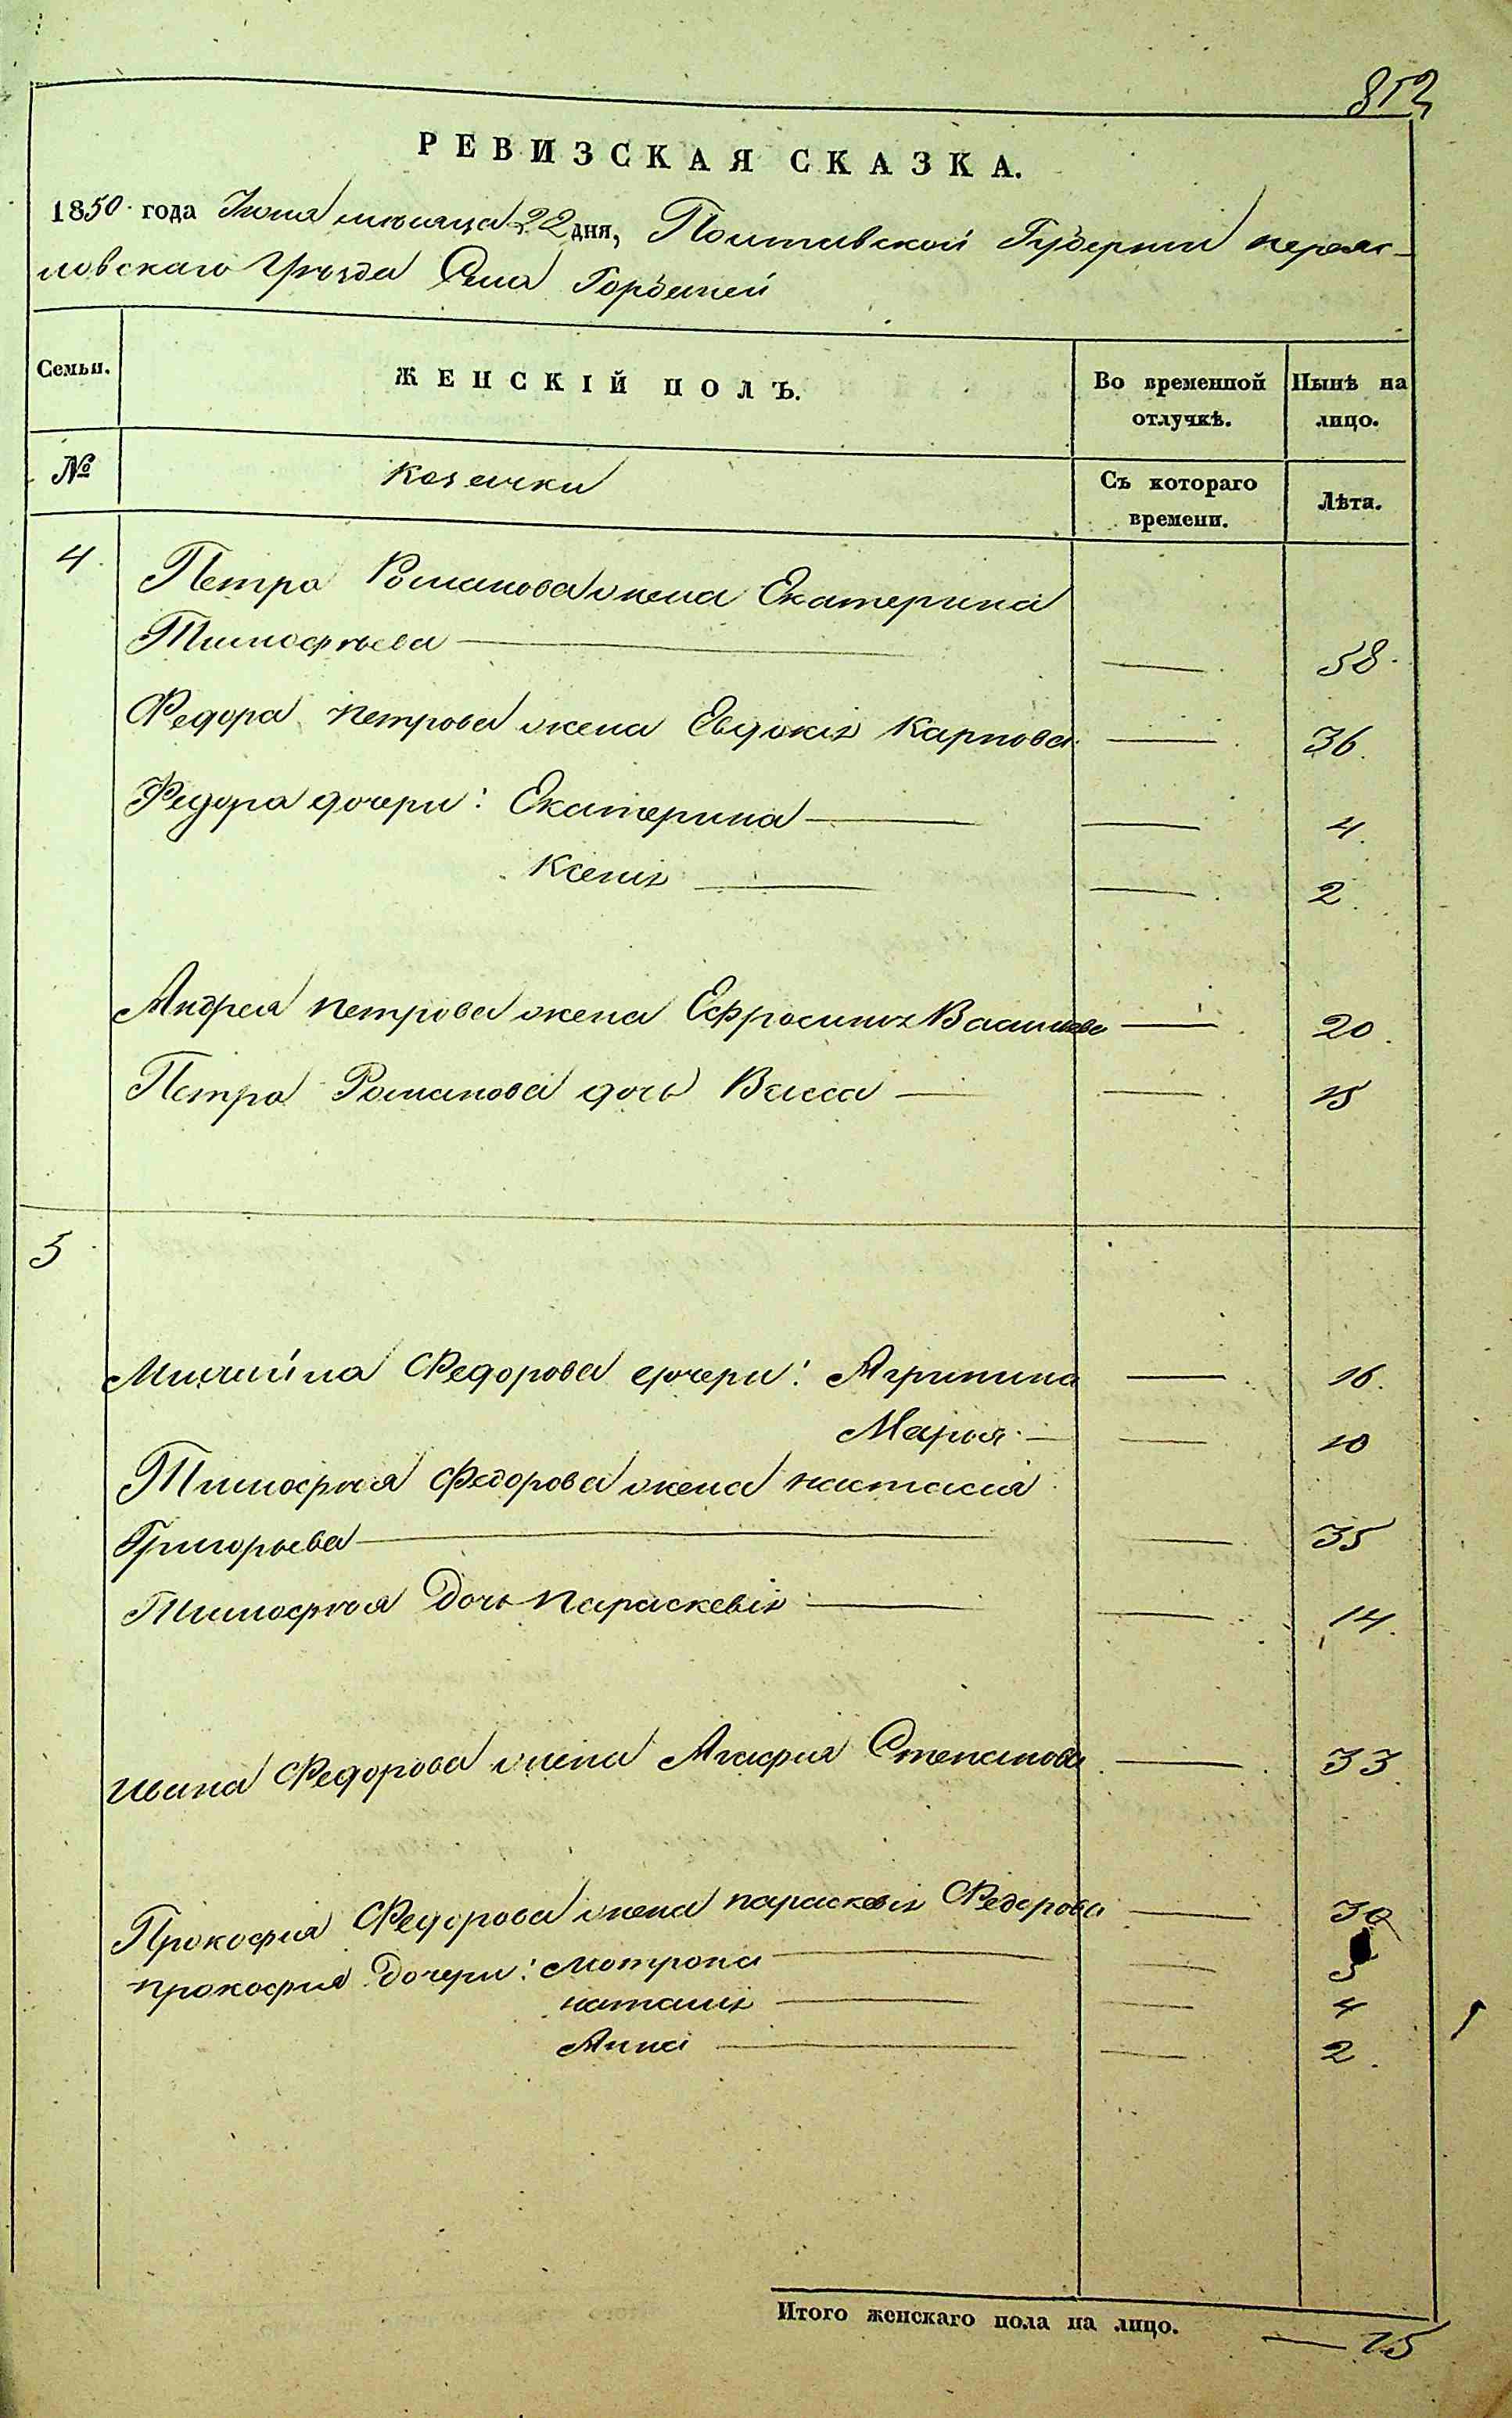 852
РЕВИЗСКАЯ СКАЗКА.
1850 года Июня месяца 22 дня, Полтавской Губернии переяс-
ловскаго Уѣзда Села Горбаней
Семьи.
ЖЕНСКІЙ ПОЛЪ.
Во временной отлучкѣ.
Нынѣ на лицо.
№
козачки
Съ котораго времени.
Лѣта.
4.
Петра Романова жена Екатерина
Тимофѣева — — 58.
Федора петрова жена Евдокія Карпова — 36.
Федора дочери: Екатерина — — 4.
Ксенія — — 2.
Андрея петрова жена Ефросинія Васильева — 20.
Петра Романова дочь Васса — — 15
5
Михайла Федорова дочери: Агрипина — 16.
Марья — — 10
Тимофѣя Федорова жена наталія
Григорьева — — 35
Тимофѣя Дочь параскевія — — 14.
Ивана Федорова жена Агафия Степанова — 33.
Прокофия Федорова жена параскевія Федорова — 30
прокофия Дочери: мотрона — — 5
наталія — — 4
Анна — — 2.
Итого женскаго пола на лицо. — 15